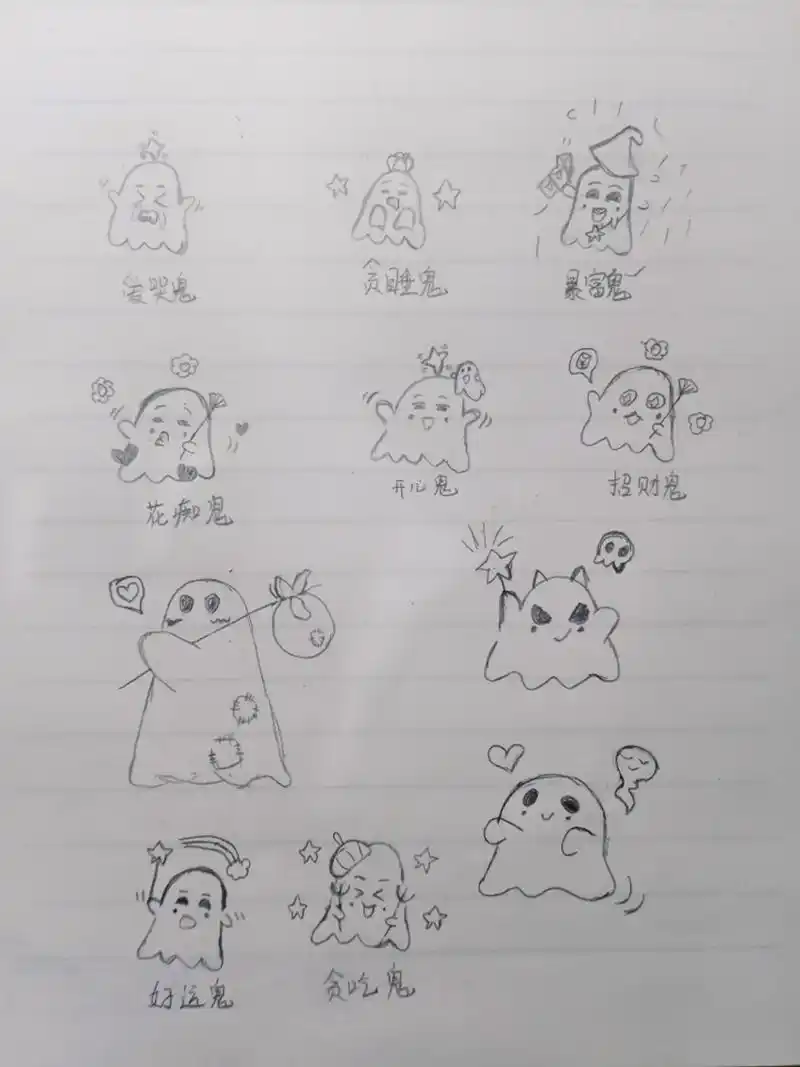 爱哭鬼
贪睡鬼
暴富鬼
花痴鬼
开心鬼
招财鬼
好运鬼
贪吃鬼